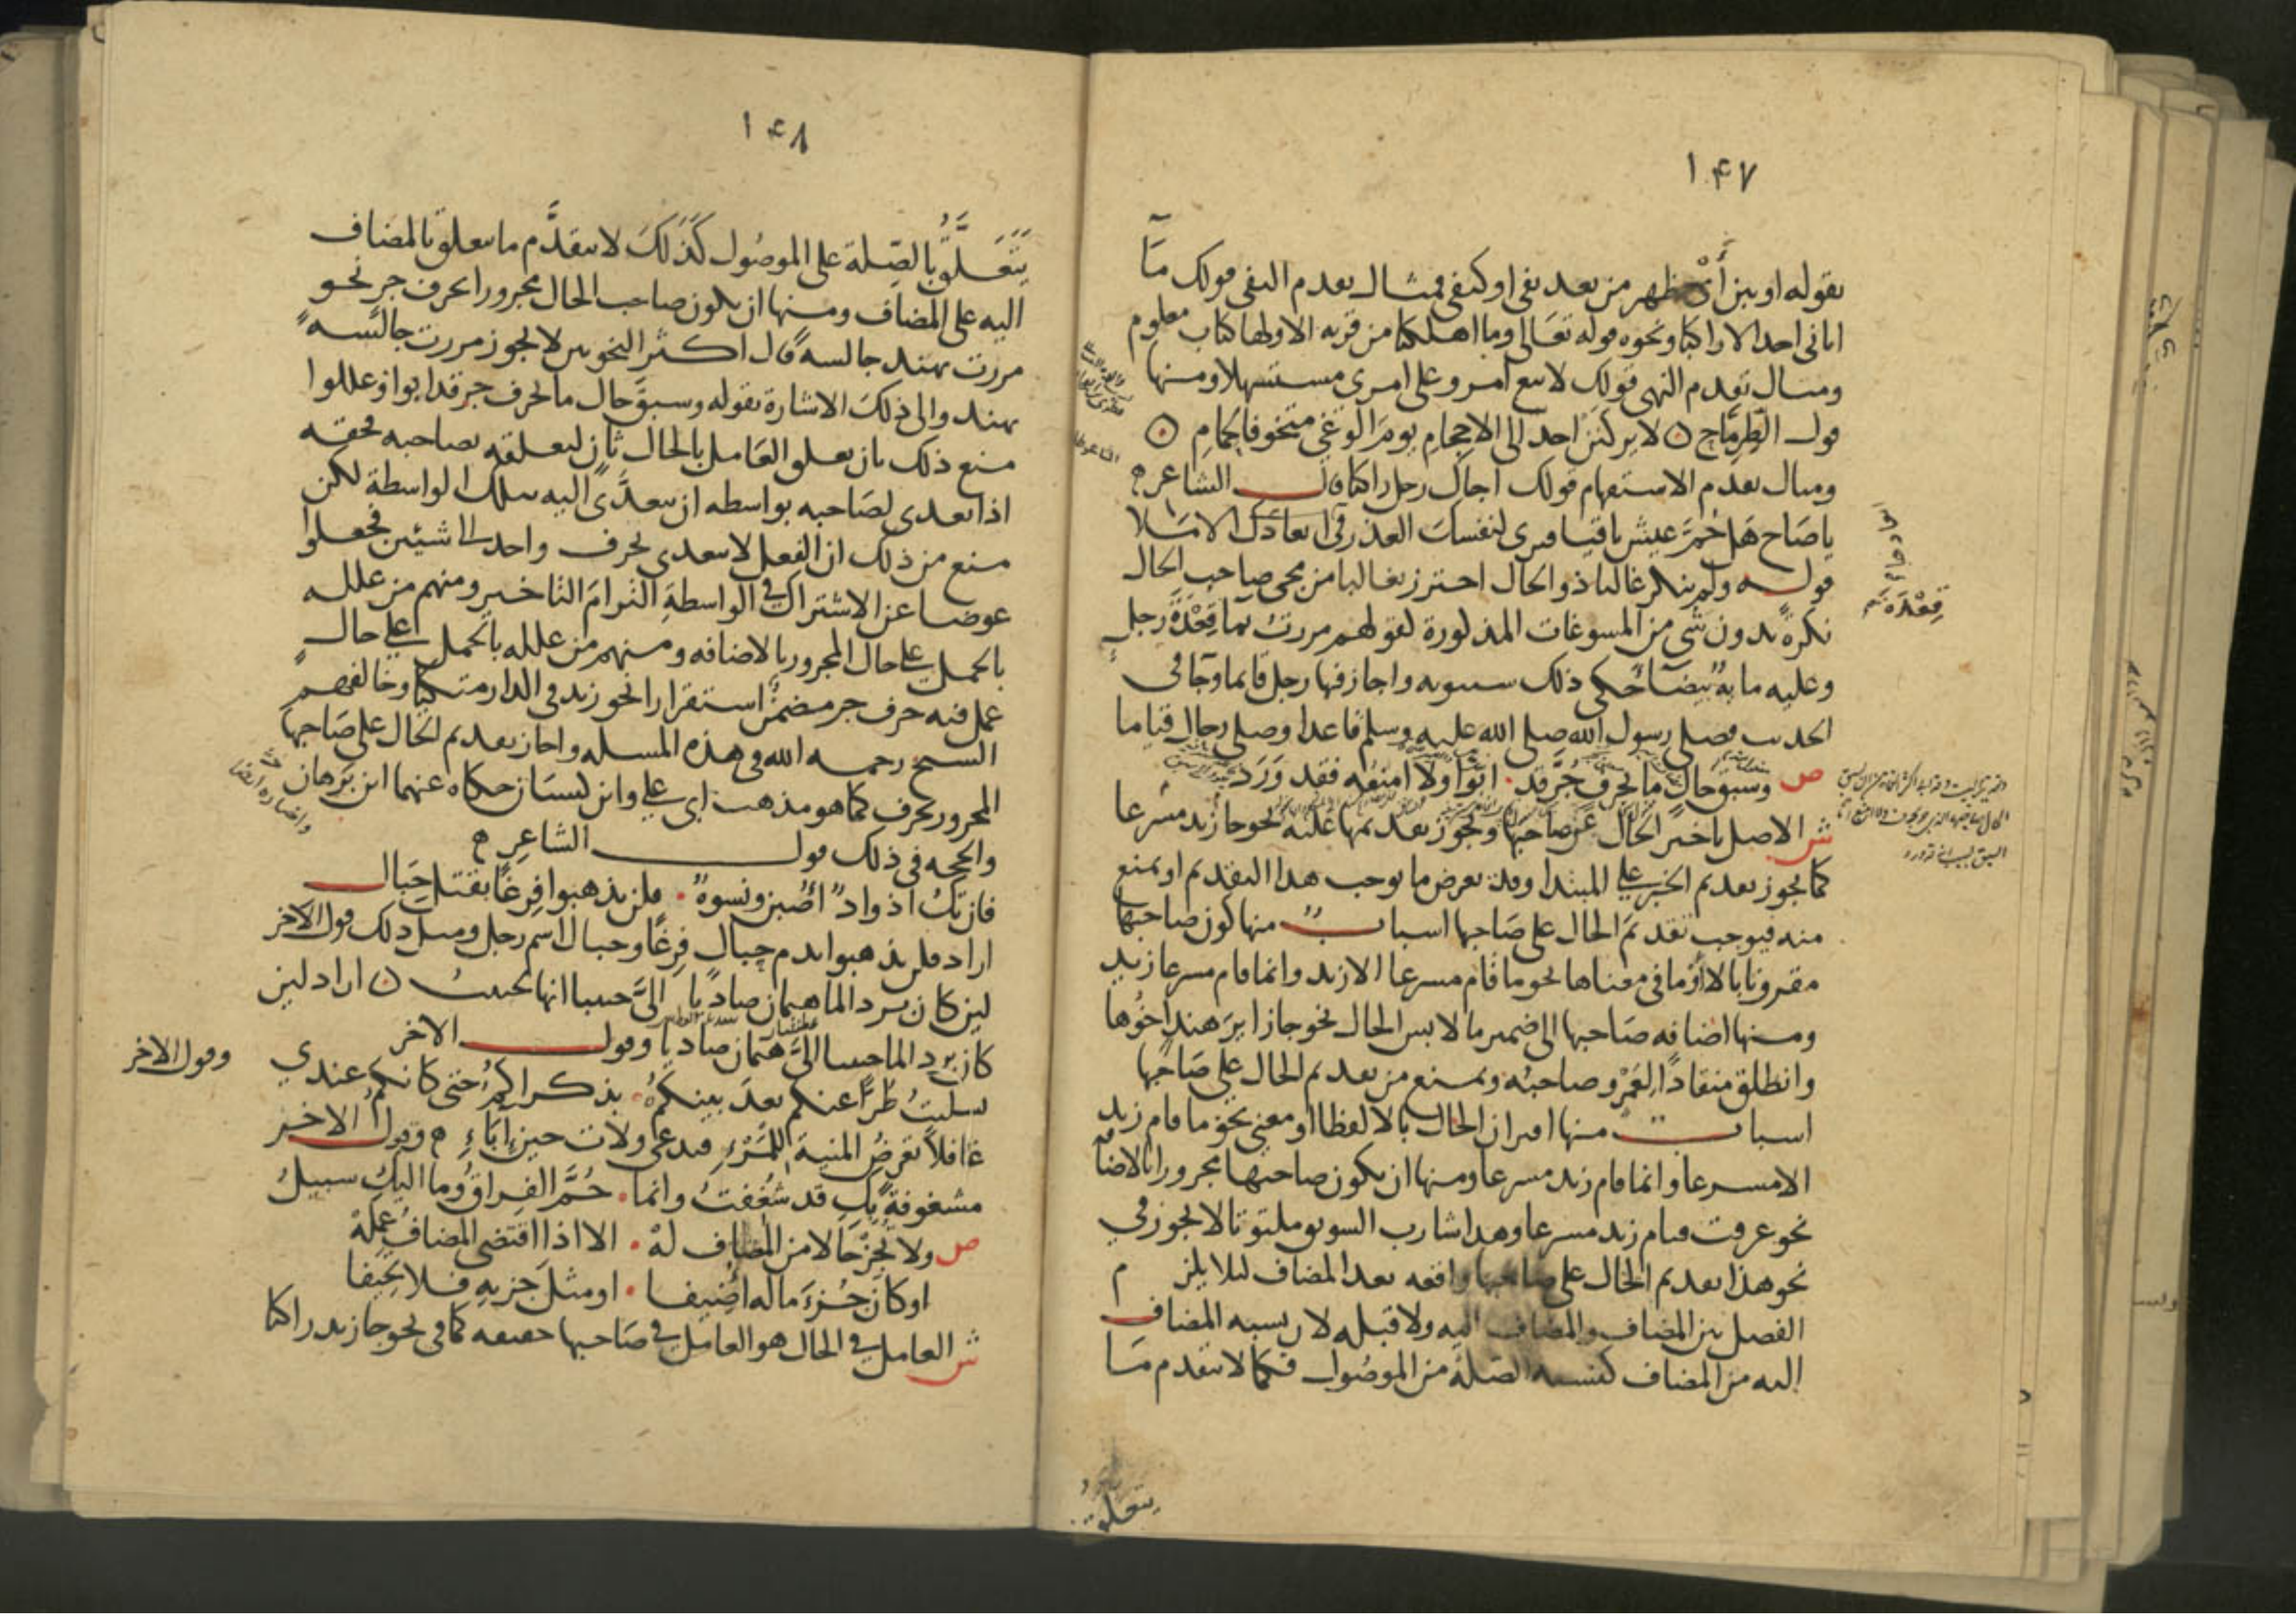 ١٤٧
بقوله او يبن أَنْ يظهر من بعد نفي او كنفي فمثال تقدم النفي قولك مَا
اتاني احد الا راكبا ونحوه قوله تعالى وما اهلكنا من قرية الا ولها كتاب معلوم
ومثال تقدم النهي قولك لا يبغ امرو على امرى مستسهلا ومنها
قول الطِرِمَّاح ن لا يركنَنْ احد الى الاحجام يومَ الوَغى متخوفا لحِمامِ
ومثال تقدم الاستفهام قولك اجاك رجل راكبا قال الشاعر
ياصَاح هَل حُمَّ عيش باقيا فترى لنفسك العذر في ابعادك الامَلا
قوله ولم ينكر غالبا ذو الحال احترز بغالبا من مجى صاحب الحال
نكرةً بدون شي من المسوغات المذكورة كقولهم مررتُ بماء قِعْدَةَ رجلٍ
قِعْدَة
وعليه ماية بيضًا حكى ذلك سيبويه واجاز فيها رجل قايما وجا في
الحديث فصلى رسول الله صلى الله عليه وسلم قاعدا وصلى رجال قياما
ص وسبق حال ما بحرف جُرَّ قد ٠ ابَوْا ولا امنعُه فقد وَرَدْ
ش الاصل تاخير الحَال عن صاحبها ويجوز تقديمها عليه نحو جا زيد مسرعا
كما يجوز تقديم الخبر على المبتدا وقد يعرض ما يوجب هذا التقديم او يمنع
منه فيوجب تقديمَ الحال على صَاحبها اسباب منها كون صاحبها
مقرونا بالا او ما في معناها نحو ما قام مسرعا الا زيد وانما قام مسرعا زيد
ومنها اضافه صَاحبها الى ضمير ما لابس الحال نحو جا زايرَ هند اخوُها
وانطلق منقادًا لِعَمْرٍو صاحبُه ويمنع من تقديم الحال على صَاحبها
اسباب منها اقتران الحال بالا لفظا او معنى نحو ما قام زيد
الا مسرعا وانما قام زيد مسرعا ومنها ان يكون صاحبها مجرورا بالاضافة
نحو عرفت قيام زيد مسرعا وهذا شارب السويق ملتوتا لا يجوز في
نحو هذا تقديم الحال على صاحبها واقعه بعد المضاف ليلا يلزم
الفصل بين المضاف والمضاف اليه ولا قبله لان نسبه المضاف
اليه من المضاف كنسبه الصلة من الموصُول فكما لا يتقدم مَا
يتعلق
١٤٨
يتَعَلَّقُ بالصِّلة على الموصُول كَذَلكَ لا يتقدَّم ما يتعلق بالمضاف
اليه على المضاف ومنها ان يكون صاحب الحال مجرورا بحرف جر نحو
مررت بهند جالسه قال اكثر النحويين لا يجوز مررت جالسه
بهند والى ذلك الاشارة بقوله وسبق حال ما بحرف جر قد ابوا وعللوا
منع ذلك بان تعلق العَامل بالحال ثانٍ لتعلقه بصاحبه فحقه
اذا تعدى لصَاحبه بواسطه ان يتعدَّى اليه بتلك الواسطة لكن
منع من ذلك ان الفعل لا يتعدى بحرف واحد الى شيئين فجعلوا
عوضا عن الاشتراك في الواسطةِ التزامَ التاخير ومنهم من علله
بالحمل على حال المجرور بالاضافه ومنهم من علله بالحمل على حالٍ
عمل فيه حرف جر مضمَّن استقرارا نحو زيد في الدار متكيا وخالفهم
الشيخ رحمه الله في هذه المسله واجاز تقديم الحَال على صَاحبها
المجرور بحرف كما هو مذهب ابي علي وابن كيسَان حكاه عنهما ابن بَرهان
والحجه في ذلك قول الشاعر
فان تكُ اذوادٌ أُصبنَ ونسوةٌ ٠ فلن يذهبوا فِرغًا بقتل حِبَال
اراد فلن يذهبوا بدم حِبال فِرغًا وحبال اسم رجل ومثل ذلك قول الاخر
لين كان برد الما هيمان صاديا اليَّ حبيبا انها لحبيبُ ن اراد لين
كان بَرد الما حبيبا اليَّ هيمان صاديا وقول الاخر
تسليتُ طُرًّا عنكم بَعدَ بينكمُ ٠ بذكراكمُ حتى كانكم عندي
وقول الاخر
غافلاً تعرضُ المنية للمَرْءِ فيدعى ولات حينَ إبَاءِ وقول الاخر
مشغوفةً بِكِ قد شُغِفتُ وانما ٠ حُمَّ الفِراقُ وما اليكِ سبيلُ
ص ولا تُجِزْ حَالا من المضاف لهْ ٠ الا اذا اقتضى المضافُ عملَهْ
او كانَ جُزءَ ماله اضيفا ٠ او مثلَ جزيهِ فلا تحيفا
ش العامل في الحال هو العامل في صَاحبها حقيقه كما في نحو جا زيد راكبا